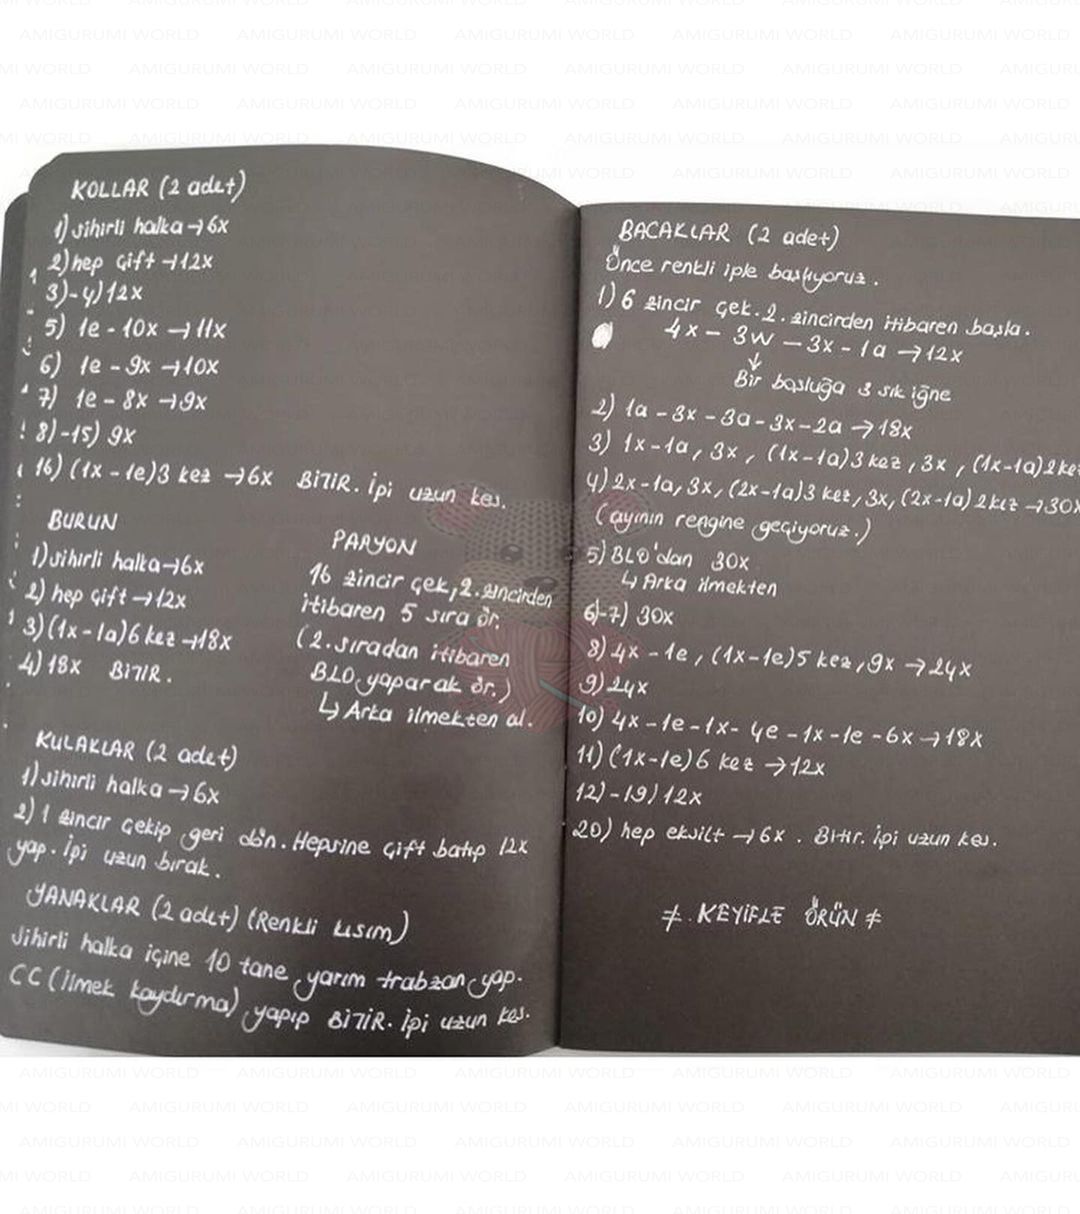 KOLLAR (2 adet)
1) sihirli halka → 6x
2) hep çift → 12x
3)-4) 12x
5) 1e - 10x → 11x
6) 1e - 9x → 10x
7) 1e - 8x → 9x
8)-15) 9x
16) (1x - 1e) 3 kez → 6x BİTİR. İpi uzun kes.
BURUN
1) sihirli halka → 6x
2) hep çift → 12x
3) (1x - 1a) 6 kez → 18x
4) 18x BİTİR.
PAPYON
16 zincir çek, 2. zincirden
itibaren 5 sıra ör.
(2. sıradan itibaren
BLO yaparak ör.)
↳ Arka ilmekten al.
KULAKLAR (2 adet)
1) sihirli halka → 6x
2) 1 zincir çekip geri dön. Hepsine çift batıp 12x
yap. İpi uzun bırak.
YANAKLAR (2 adet) (Renkli kısım)
Sihirli halka içine 10 tane yarım trabzan yap.
CC (ilmek kaydırma) yapıp BİTİR. İpi uzun kes.
BACAKLAR (2 adet)
Önce renkli iple başlıyoruz.
1) 6 zincir çek. 2. zincirden itibaren başla.
4x - 3w - 3x - 1a → 12x
↓
Bir boşluğa 3 sık iğne
2) 1a - 3x - 3a - 3x - 2a → 18x
3) 1x - 1a, 3x, (1x - 1a) 3 kez, 3x, (1x - 1a) 2 kez
4) 2x - 1a, 3x, (2x - 1a) 3 kez, 3x, (2x - 1a) 2 kez → 30x
(ayının rengine geçiyoruz.)
5) BLO'dan 30x
↳ Arka ilmekten
6)-7) 30x
8) 4x - 1e, (1x - 1e) 5 kez, 9x → 24x
9) 24x
10) 4x - 1e - 1x - 4e - 1x - 1e - 6x → 18x
11) (1x - 1e) 6 kez → 12x
12)-19) 12x
20) hep eksilt → 6x. Bitir. İpi uzun kes.
≠ KEYİFLE ÖRÜN ≠
AMIGURUMI WORLD